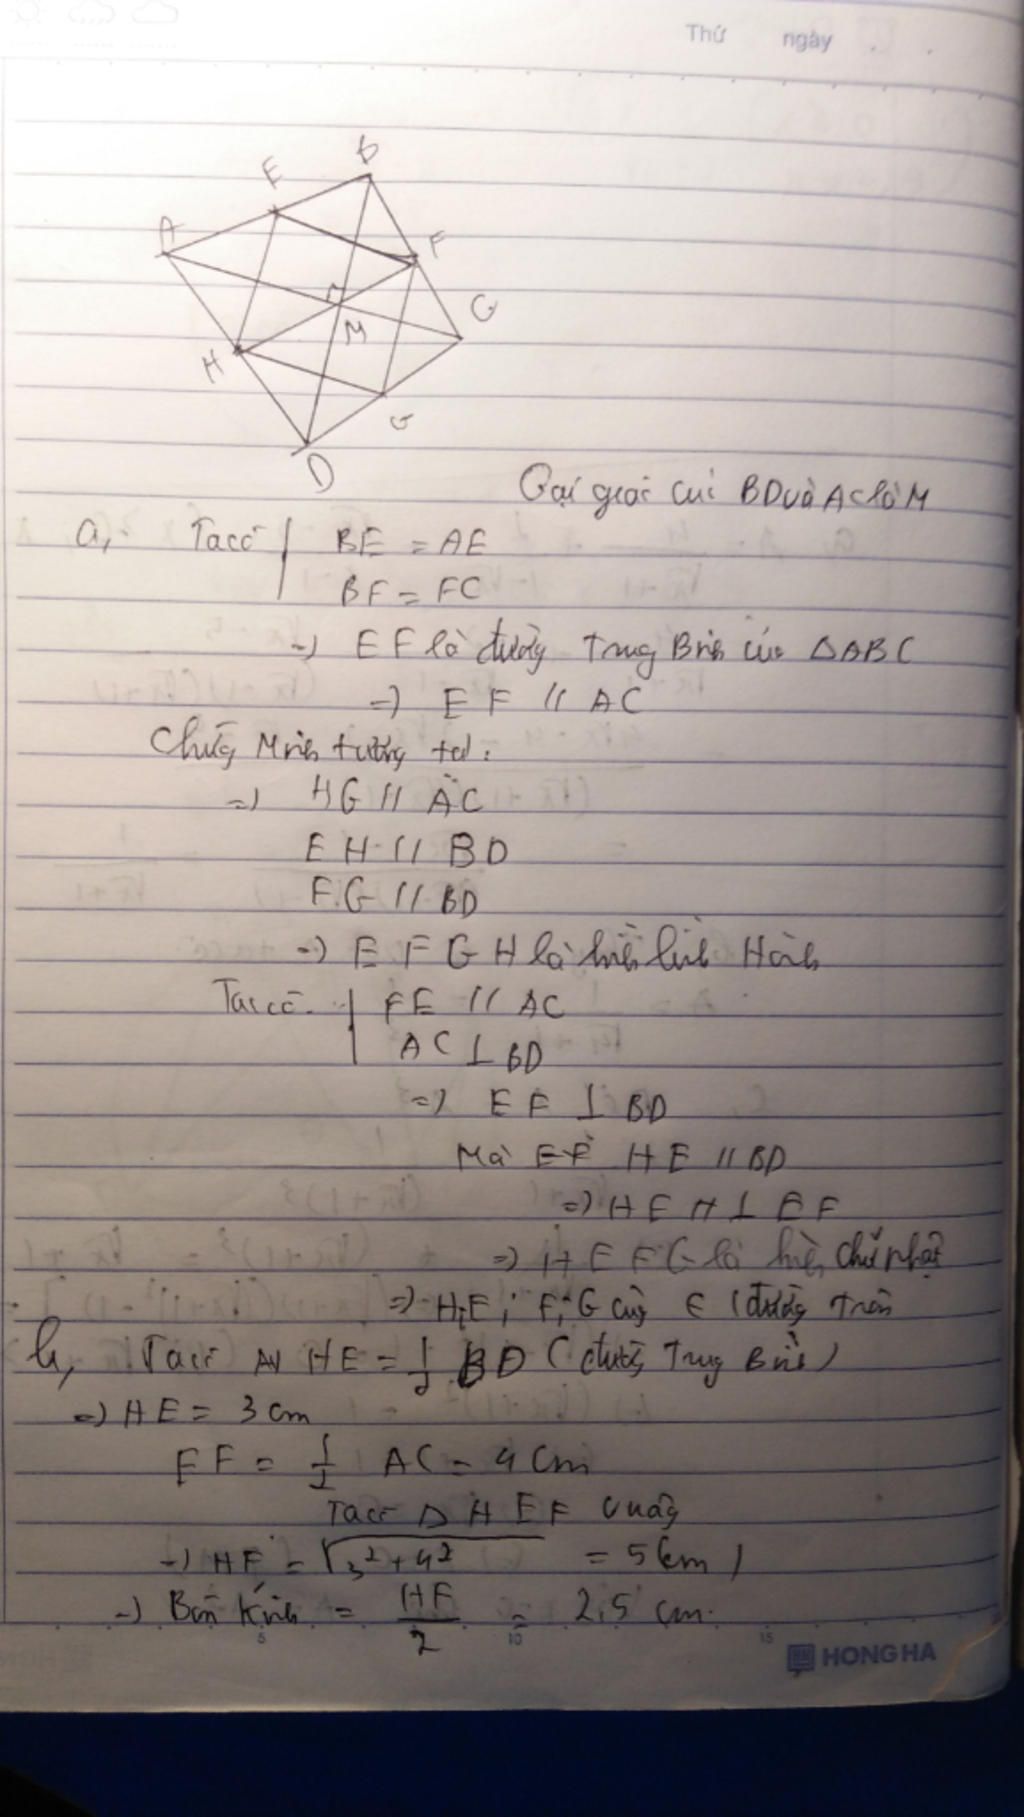 Thứ ngày
B
E
A
F
C
M
H
G
D
Gọi giao của BD và AC là M
a, Ta có BE = AE
BF = FC
=> EF là đường Trung Bình của ΔABC
=> EF // AC
Chứng Minh tương tự:
=> HG // AC
EH // BD
FG // BD
=> EFGH là hình bình Hành
Ta có FE // AC
AC ⊥ BD
=> EF ⊥ BD
Mà HE // BD
=> HE ⊥ EF
=> HEFG là hình chữ nhật
=> H, E; F; G cùng ∈ 1 đường tròn
b, Ta có HE = 1/2 BD (đường Trung Bình)
=> HE = 3 cm
EF = 1/2 AC = 4 cm
Ta có Δ HEF vuông
=> HF = √3²+4² = 5 (cm)
=> Bán kính = HF/2 = 2,5 cm.
5 10 15
HONG HA